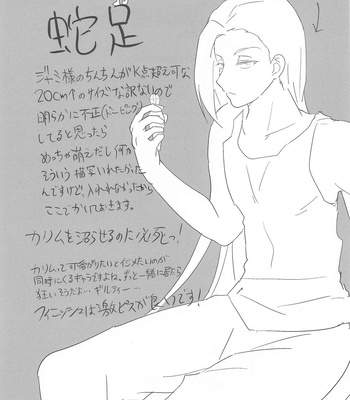 蛇足
ジャミ様のちんちんがK点超え可な
20cm↑のサイズな訳ないので
明らかに不正(ドーピング)
してると思ったら
めっちゃ萌えだし何か
そういう描写いれたかった
んですけど、入れれなかったから
ここでかいておきます。
カリムを沼らせるのに必死っ!
カリムって可愛がりたいとイジメたいのが
同時にくるキャラですよね、ずっと一緒に居たら
狂いそうだよ…ギルティー…
フィニッシュは激ピスが良いです!